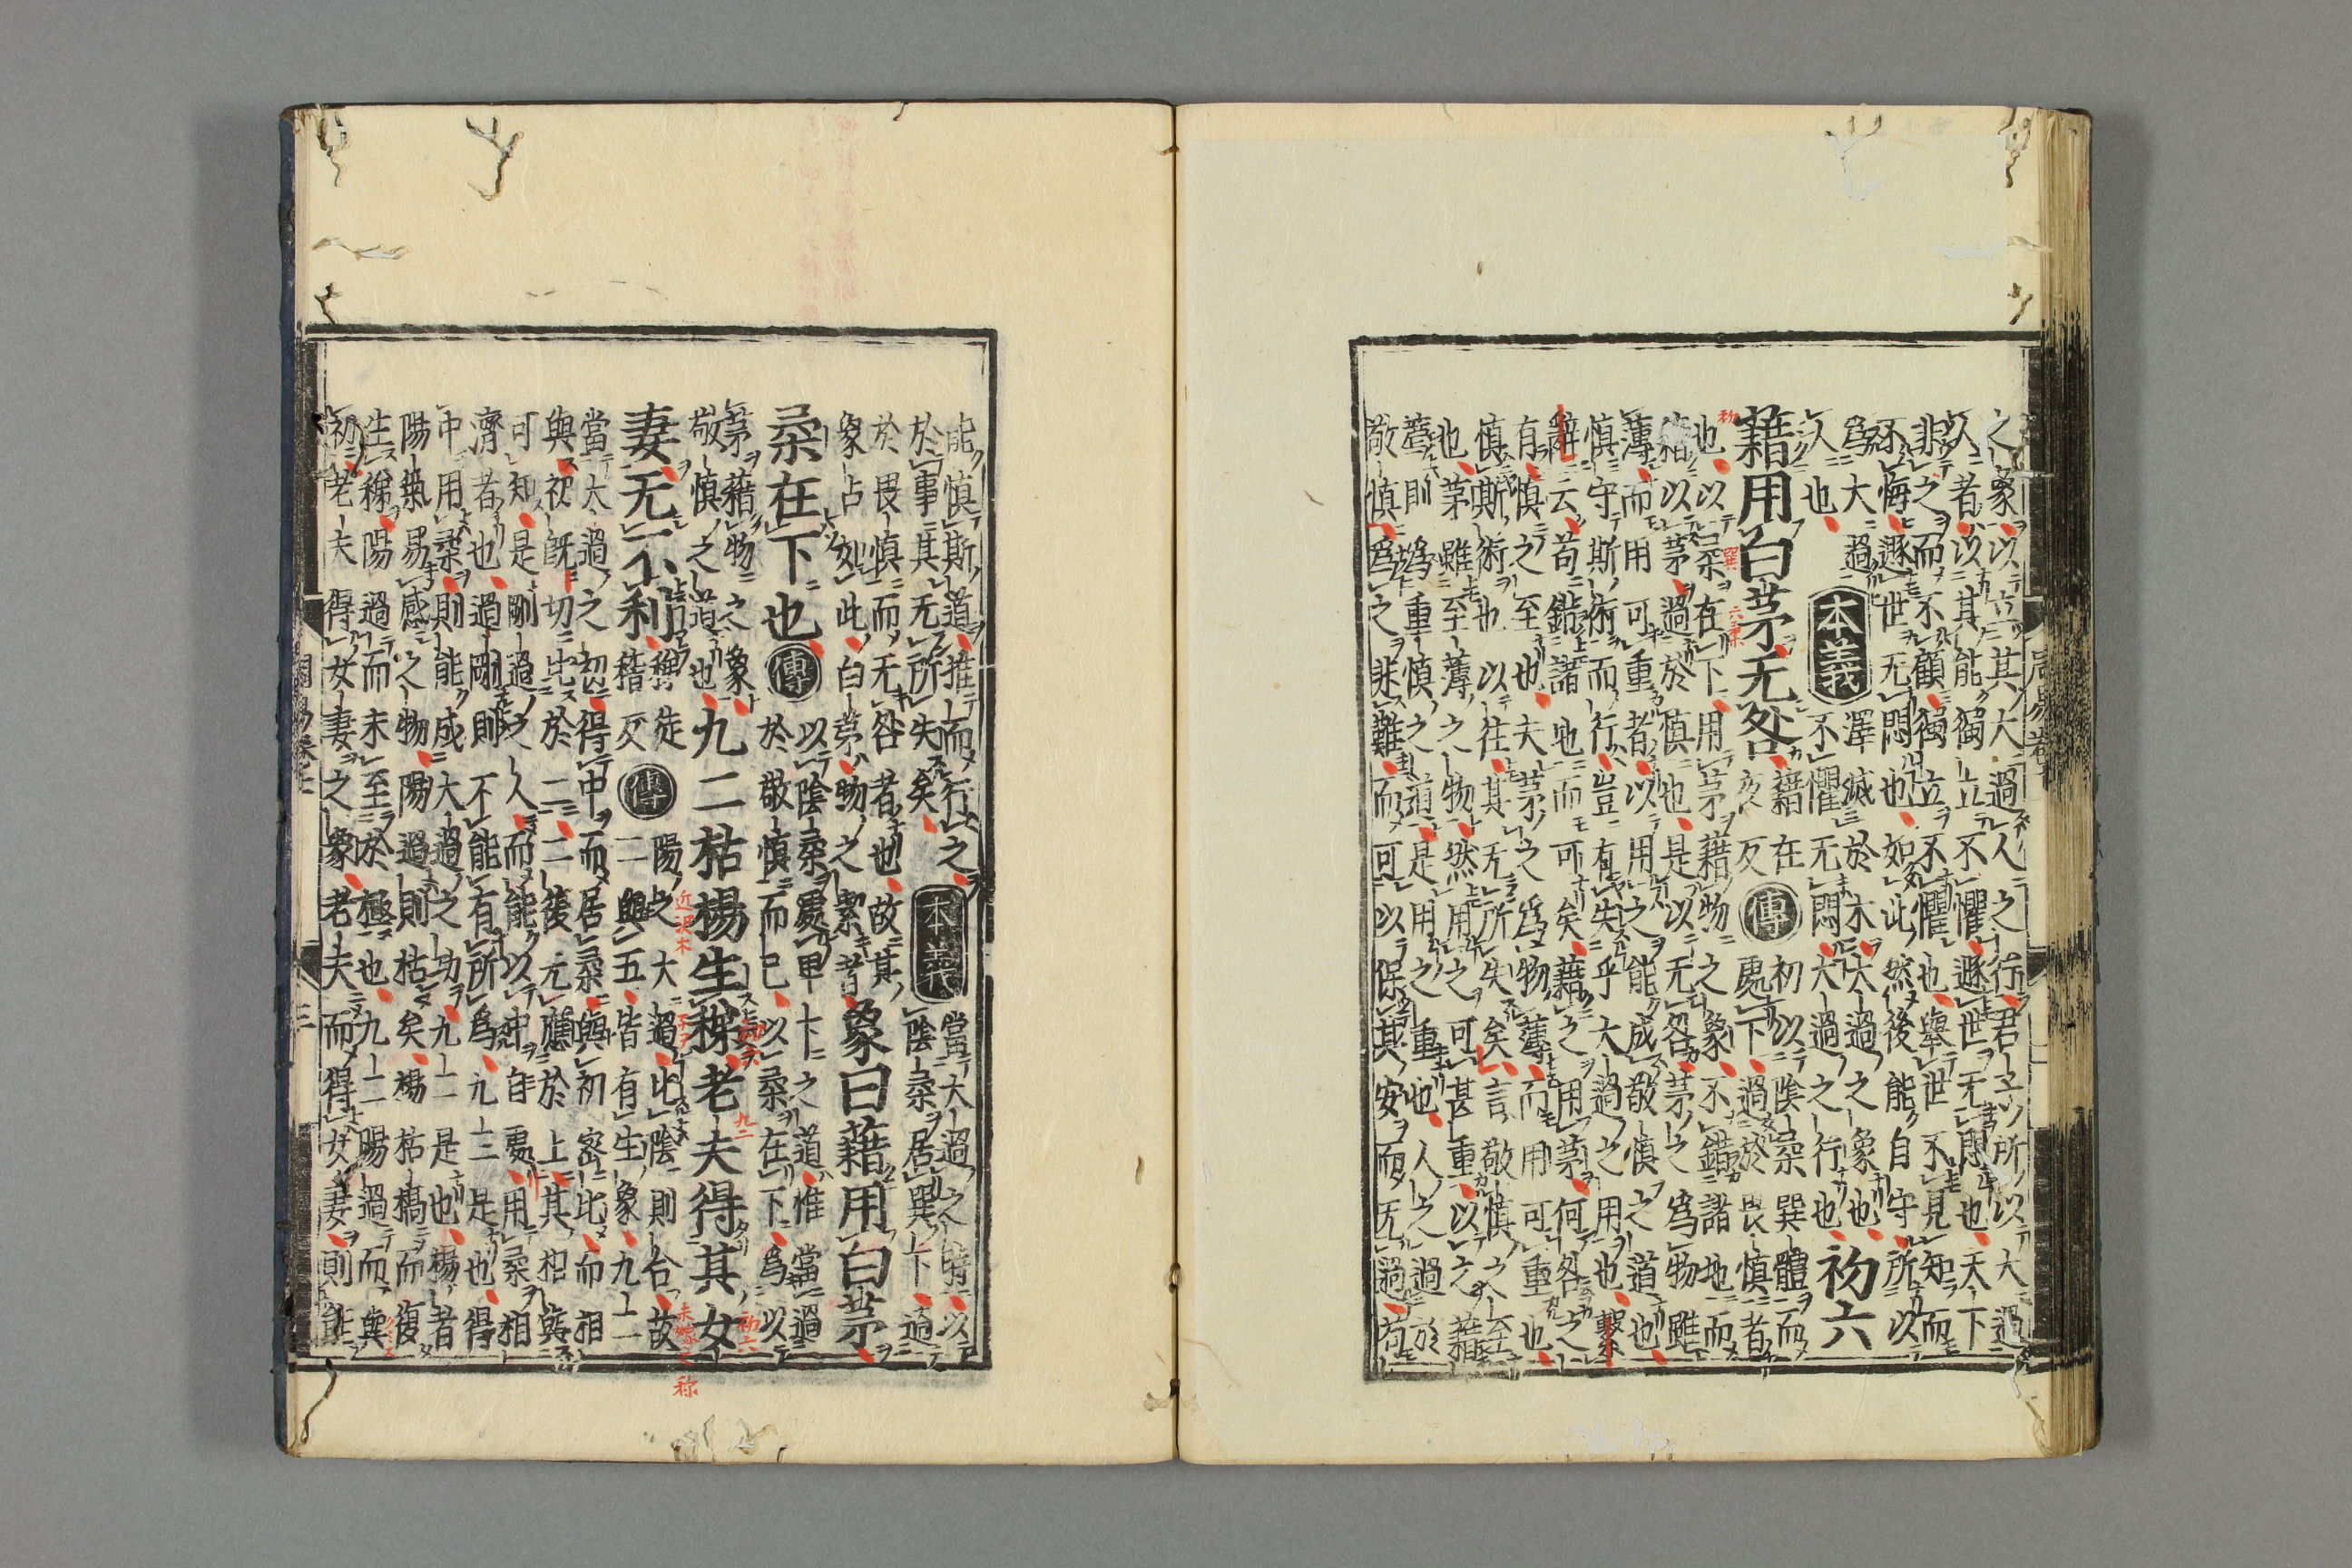 之象以立其大過人之行君子所以大過
人者以其能獨立不懼遯世无悶也天下
非之而不顧獨立不懼也舉世不見知而
不悔遯世无悶也如此然後能自守所以
爲大過
人也
本義
澤滅於木大過之象也
不懼无悶大過之行也
初六
藉用白茅无咎
藉在
夜反
傳
初以陰柔巽體而
處下過於畏慎者
也以柔在下用茅藉物之象不錯諸地而
藉以茅過於慎也是以无咎茅之爲物雖
薄而用可重者以用之能成敬慎之道也
慎守斯術而行豈有失乎大過之用也繫
辭云苟錯諸地而可矣藉之用茅何咎之
有慎之至也夫茅之爲物薄而用可重也
慎斯術也以往其无所失矣言敬慎之至
也茅雖至薄之物然用之可甚重以之藉
薦則爲重慎之道是用之重也人之過於
敬慎爲之非難而可以保其安而无過苟
能慎斯道推而行之
於事其无所失矣
本義
當大過之時以
陰柔居巽下過
於畏慎而无咎者也故其
象占如此白茅物之潔者
象曰藉用白茅
柔在下也
傳
以陰柔處卑下之道惟當過
於敬慎而已以柔在下爲以
茅藉物之象
敬慎之道也
九二枯楊生稊老夫得其女
妻无不利
稊徒
稽反
傳
陽之大過比陰則合故
二與五皆有生象九二
當大過之初得中而居柔與初密比而相
與初既切比於二二復无應於上其相與
可知是剛過之人而能以中自處用柔相
濟者也過剛則不能有所爲九三是也得
中用柔則能成大過之功九二是也楊者
陽氣易感之物陽過則枯矣楊枯槁而復
生稊陽過而未至於極也九二陽過而與
初老夫得女妻之象老夫而得女妻則能